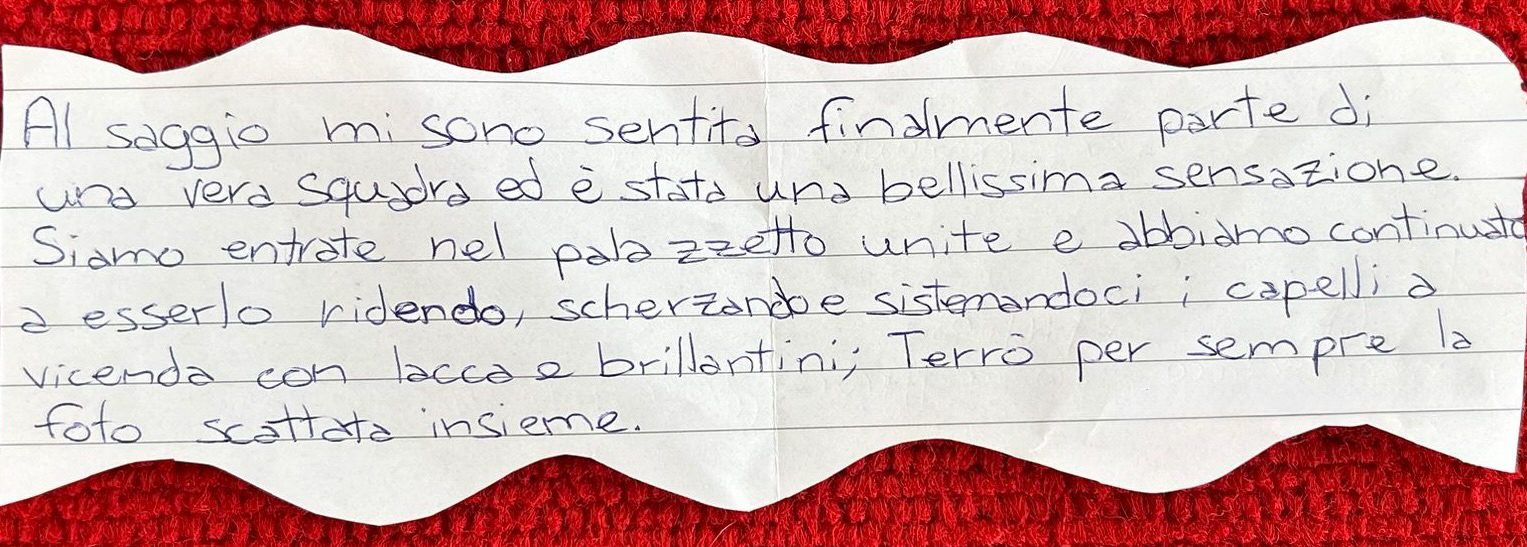 Al saggio mi sono sentita finalmente parte di
una vera squadra ed è stata una bellissima sensazione.
Siamo entrate nel palazzetto unite e abbiamo continuato
a esserlo ridendo, scherzando e sistemandoci i capelli a
vicenda con lacca e brillantini; Terrò per sempre la
foto scattata insieme.